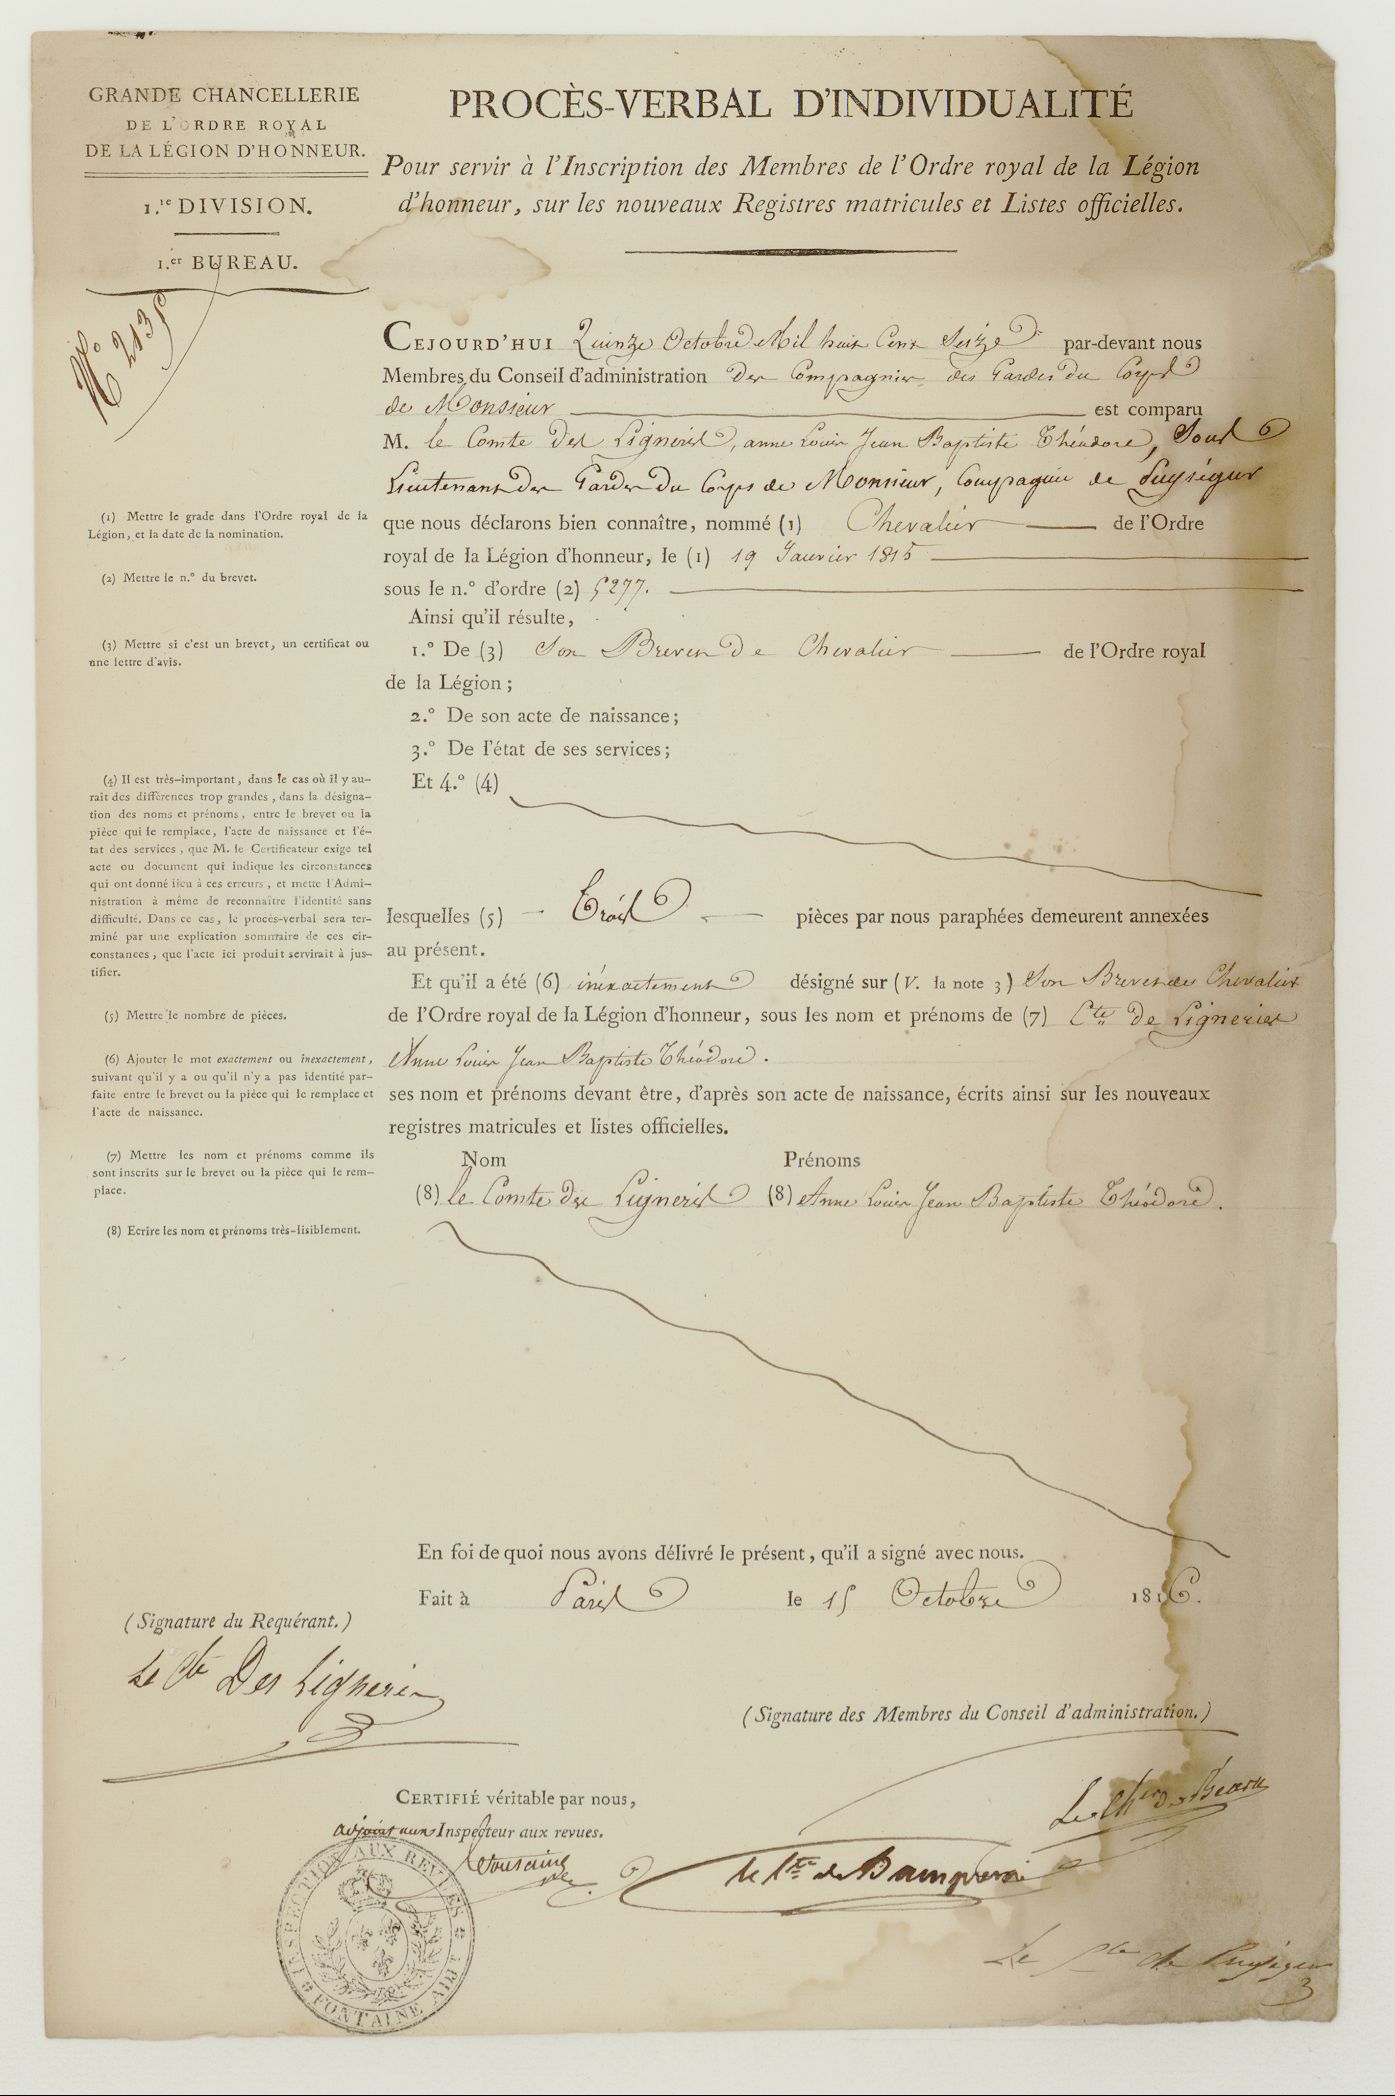 GRANDE CHANCELLERIE
DE L'ORDRE ROYAL
DE LA LÉGION D'HONNEUR.
1.re DIVISION.
1.er BUREAU.
N° 2135
PROCÈS-VERBAL D'INDIVIDUALITÉ
Pour servir à l'Inscription des Membres de l'Ordre royal de la Légion
d'honneur, sur les nouveaux Registres matricules et Listes officielles.
CEJOURD'HUI Quinze Octobre Mil huit Cent Seize par-devant nous
Membres du Conseil d'administration des Compagnies des Gardes du Corps
de Monsieur est comparu
M. le Comte Des Ligneris, anne Louis Jean Baptiste Théodore, Sous
Lieutenant des Gardes du Corps de Monsieur, Compagnie de Puységur
que nous déclarons bien connaître, nommé (1) Chevalier de l'Ordre
royal de la Légion d'honneur, le (1) 19 Janvier 1815
sous le n.° d'ordre (2) 5277.
Ainsi qu'il résulte,
1.° De (3) Son Brevet De Chevalier de l'Ordre royal
de la Légion ;
2.° De son acte de naissance ;
3.° De l'état de ses services ;
Et 4.° (4)
lesquelles (5) Trois pièces par nous paraphées demeurent annexées
au présent.
Et qu'il a été (6) inéxactement désigné sur (V. la note 3) Son Brevet de Chevalier
de l'Ordre royal de la Légion d'honneur, sous les nom et prénoms de (7) Cte De Ligneries
Anne Louis Jean Baptiste Théodore.
ses nom et prénoms devant être, d'après son acte de naissance, écrits ainsi sur les nouveaux
registres matricules et listes officielles.
Nom Prénoms
(8) le Comte des Ligneris (8) Anne Louis Jean Baptiste Théodore.
(1) Mettre le grade dans l'Ordre royal de la
Légion, et la date de la nomination.
(2) Mettre le n.° du brevet.
(3) Mettre si c'est un brevet, un certificat ou
une lettre d'avis.
(4) Il est très-important, dans le cas où il y au-
rait des différences trop grandes, dans la désigna-
tion des noms et prénoms, entre le brevet ou la
pièce qui le remplace, l'acte de naissance et l'é-
tat des services, que M. le Certificateur exige tel
acte ou document qui indique les circonstances
qui ont donné lieu à ces erreurs, et mette l'Admi-
nistration à même de reconnaître l'identité sans
difficulté. Dans ce cas, le procès-verbal sera ter-
miné par une explication sommaire de ces cir-
constances, que l'acte ici produit servirait à jus-
tifier.
(5) Mettre le nombre de pièces.
(6) Ajouter le mot exactement ou inexactement,
suivant qu'il y a ou qu'il n'y a pas identité par-
faite entre le brevet ou la pièce qui le remplace et
l'acte de naissance.
(7) Mettre les nom et prénoms comme ils
sont inscrits sur le brevet ou la pièce qui le rem-
place.
(8) Ecrire les nom et prénoms très-lisiblement.
En foi de quoi nous avons délivré le présent, qu'il a signé avec nous.
Fait à Paris le 15 Octobre 1816.
(Signature du Requérant.)
Le Cte Des Ligneris
(Signature des Membres du Conseil d'administration.)
Le Cher de Béarn
CERTIFIÉ véritable par nous,
adjoint aux Inspecteur aux revues.
le Cte de
Le Cte de Puységur
INSPECTION AUX REVUES
FONTAINE ADJT